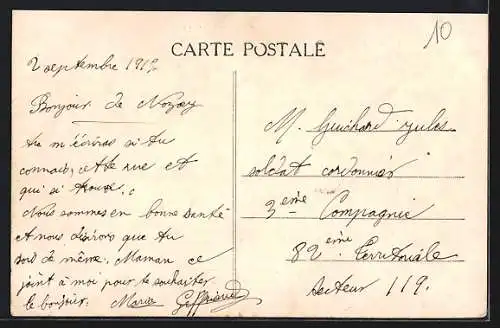 CARTE POSTALE
10
2 septembre 191
Bonjour de Nozay
Tu m'écriras si tu
connais, cette rue et
qui si trouve.
Nous sommes en bonne santé
et nous désirons que tu
sois de même. Maman ce
joint à moi pour te souhaiter
le bonjour. Marie
M. Guichard Jules
soldat cordonnier
3 eme Compagnie
82 eme Territoriale
Secteur 119.